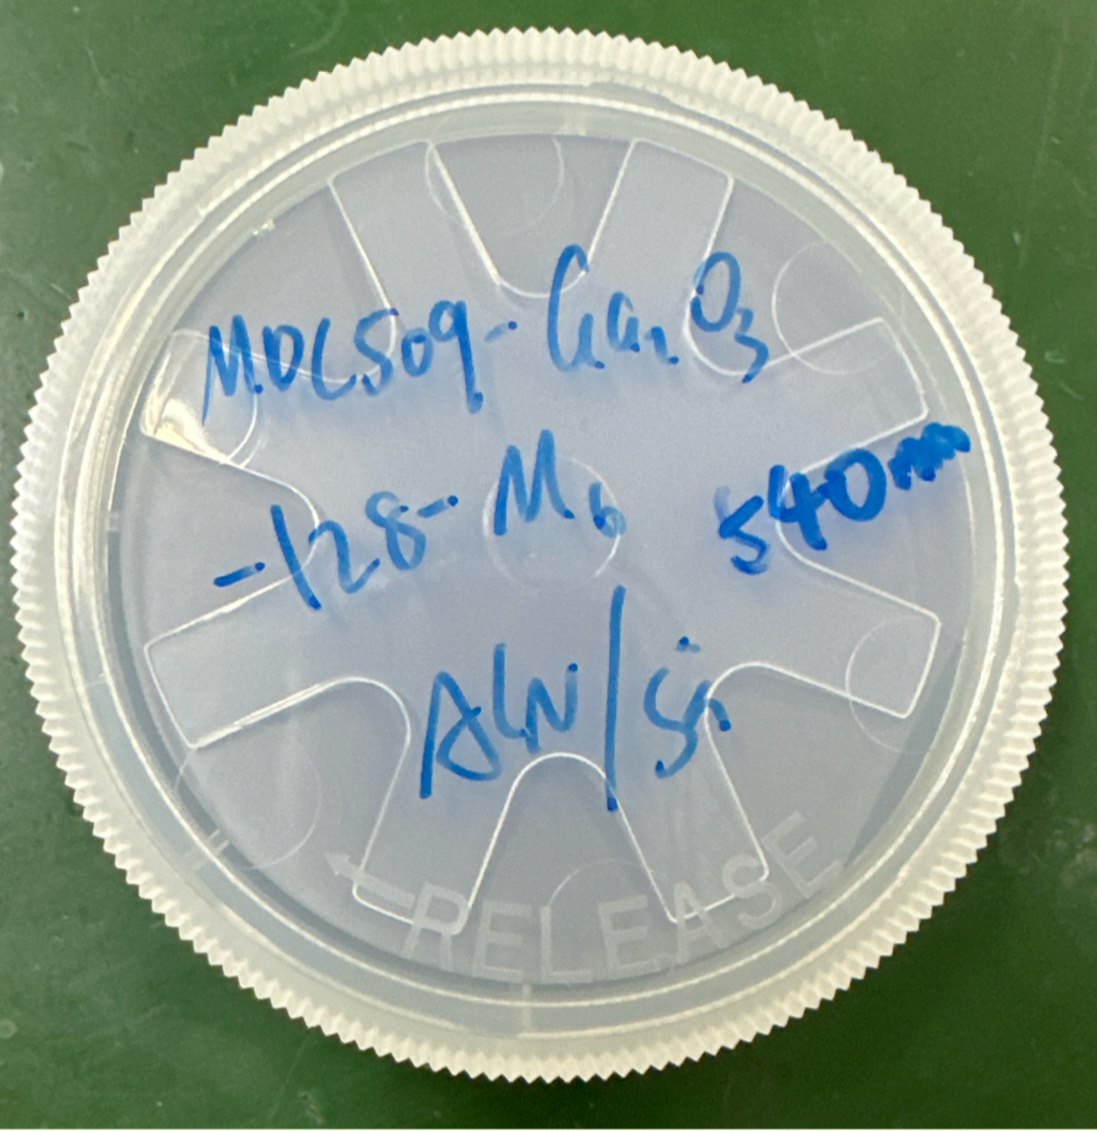 MOC509-Ga₂O₃
-128-M6
540nm
AlN/Si
←RELEASE